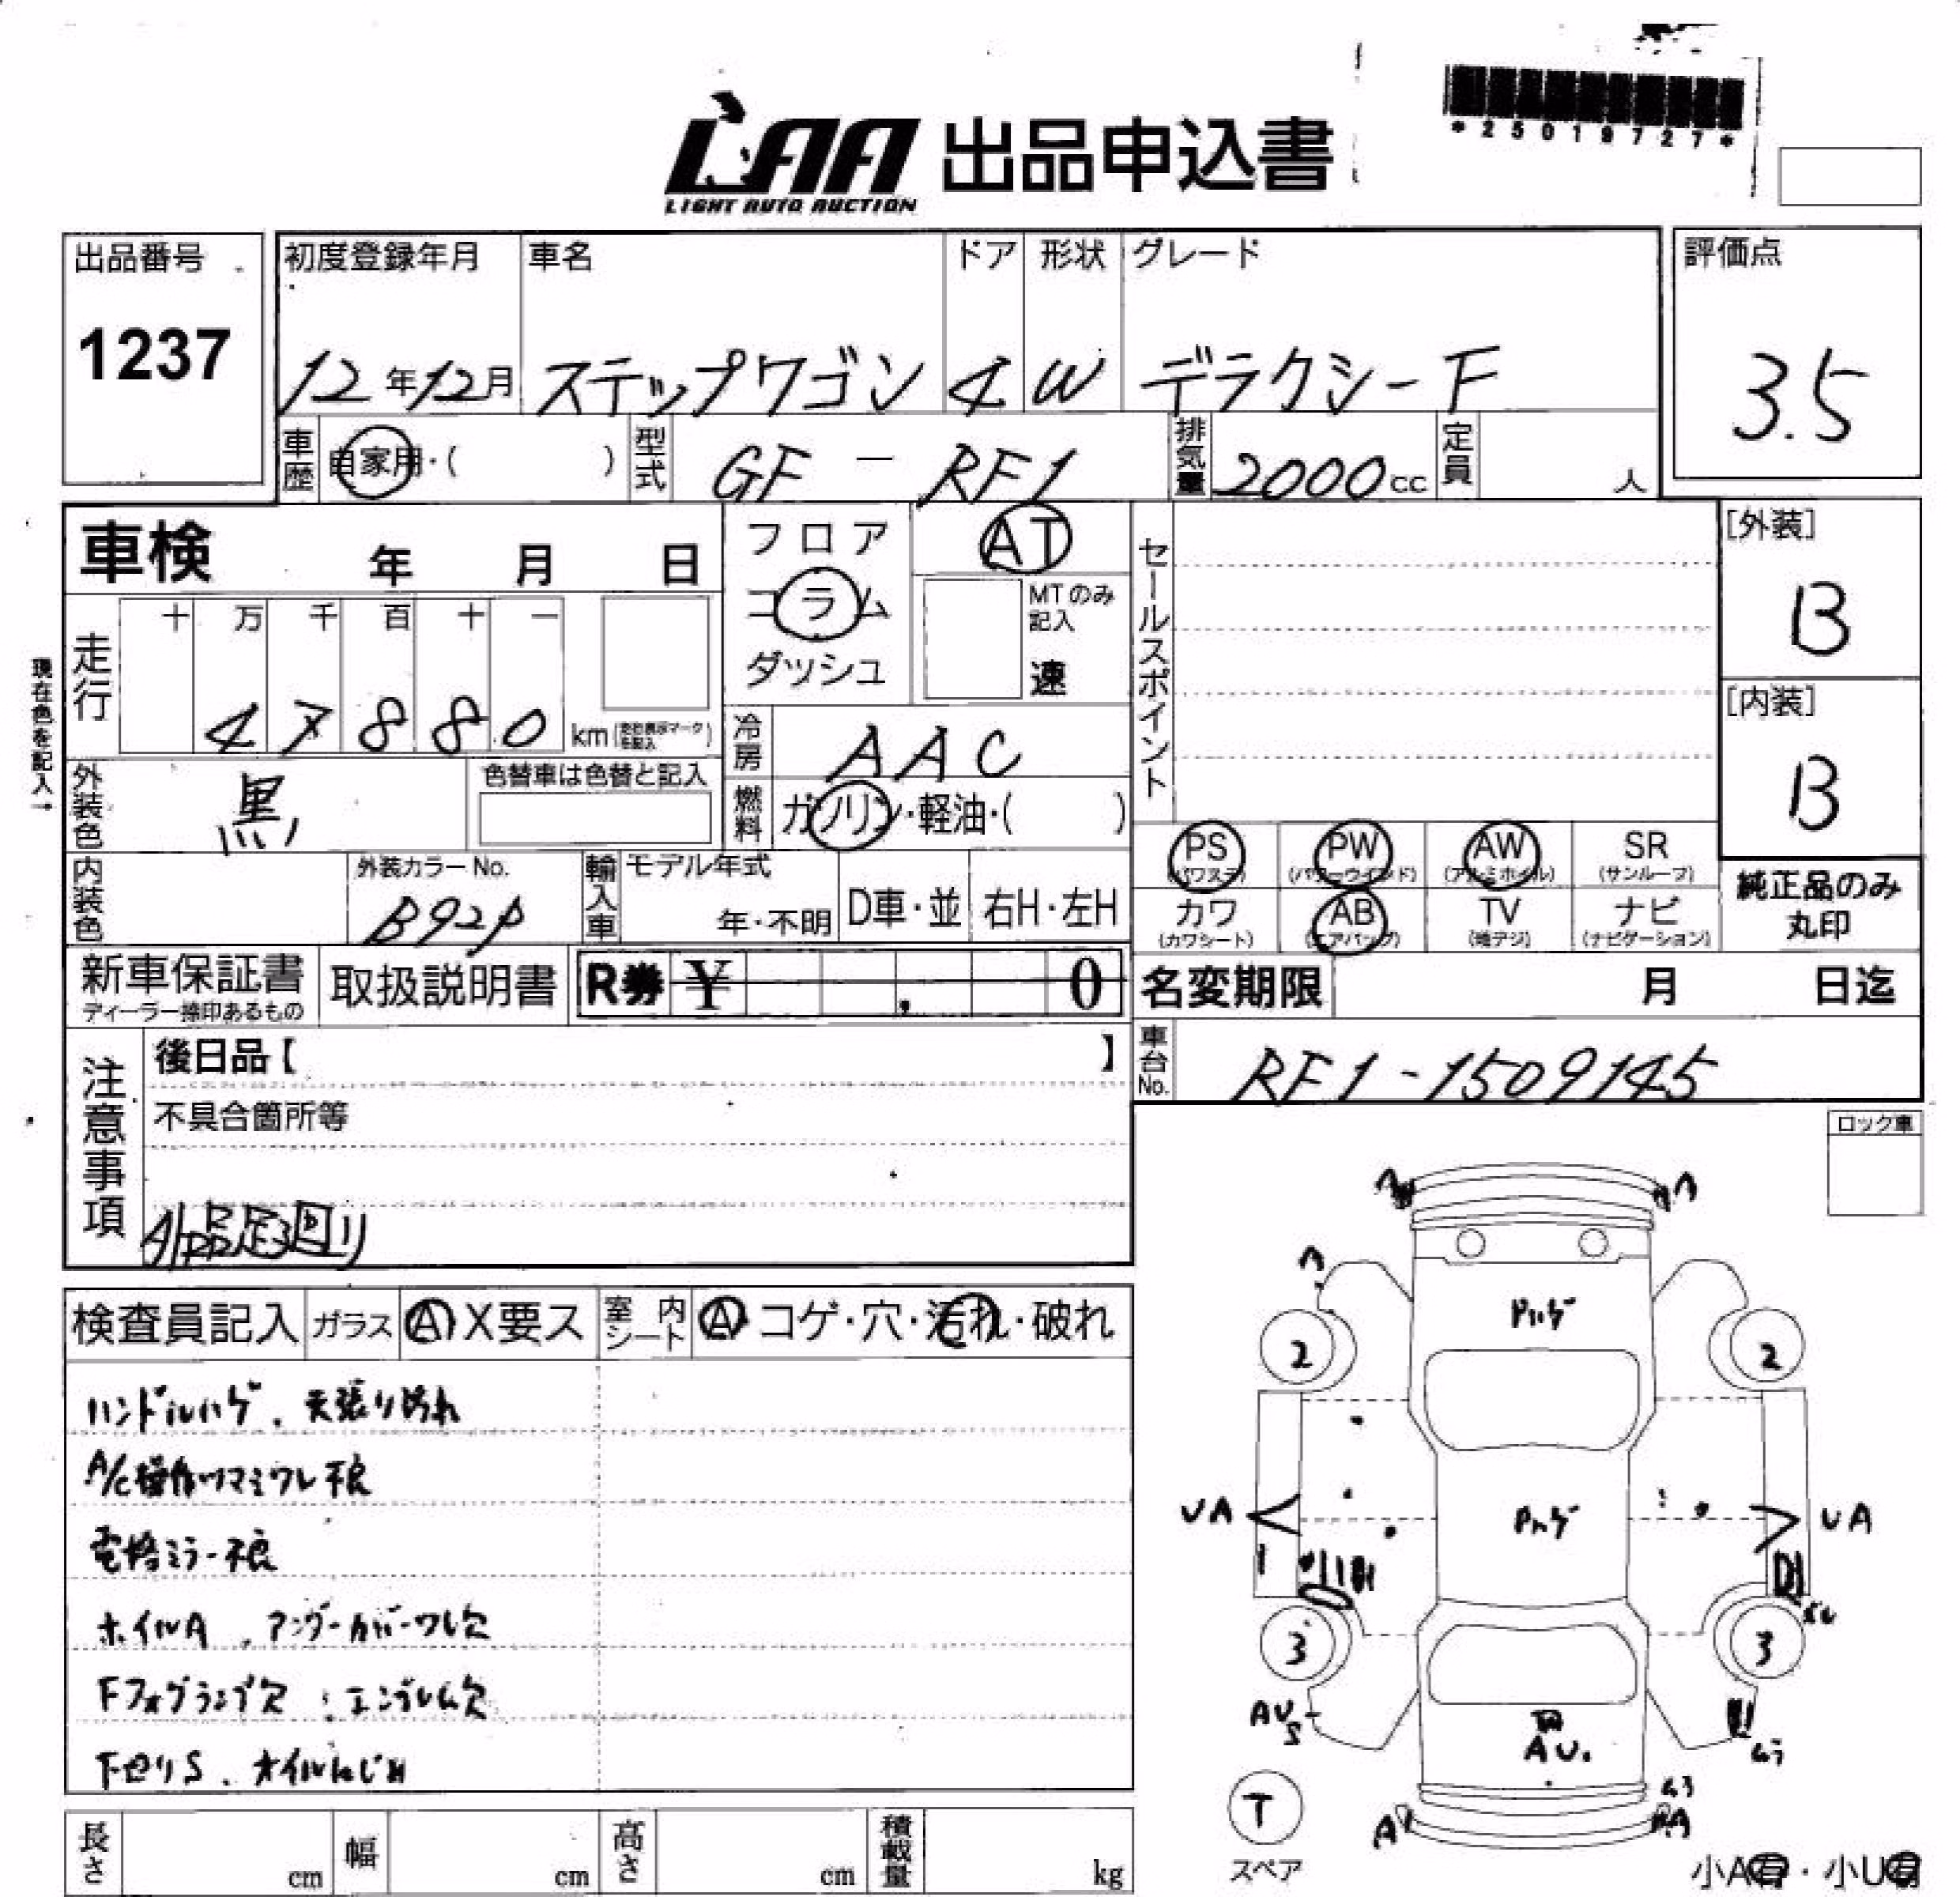 LAA 出品申込書
LIGHT AUTO AUCTION
*25019727*
出品番号
1237
初度登録年月 車名 ドア 形状 グレード
12年12月 ステップワゴン 4 W デラクシーF
評価点
3.5
車歴 自家用・( ) 型式 GF - RF1 排気量 2000cc 定員 人
車検 年 月 日
フロア
コラム
ダッシュ
AT
MTのみ記入
速
セールスポイント
[外装]
B
[内装]
B
現在色を記入→
走行 十 万 千 百 十 一
4 7 8 8 0 km
冷房 AAC
外装色 黒 色替車は色替と記入
燃料 ガソリン・軽油・( )
PS (パワステ) PW (パワーウインド) AW (アルミホイル) SR (サンルーフ)
カワ (カワシート) AB (エアバッグ) TV (地デジ) ナビ (ナビゲーション)
純正品のみ
丸印
内装色 外装カラーNo. B92P 輸入車 モデル年式 年・不明 D車・並 右H・左H
新車保証書 取扱説明書 R券 ¥ , 0 名変期限 月 日迄
ディーラー捺印あるもの
車台No. RF1-1509145
注意事項
後日品【 】
不具合箇所等
ロック車
検査員記入 ガラス A X要ス 室内シート A コゲ・穴・汚れ・破れ
ハンドルハゲ、天張り汚れ
A/C操作ツマミワレ不良
電格ミラー不良
ホイルA、アンダーカバーワレ欠
Fフォグランプ欠、エンブレム欠
下廻りS、オイルにじみ
A A
Pハゲ
2 2
UA Pハゲ UA
3 3
AUS
AU.
T
A A
スペア
小A有・小U有
長さ cm 幅 cm 高さ cm 積載量 kg